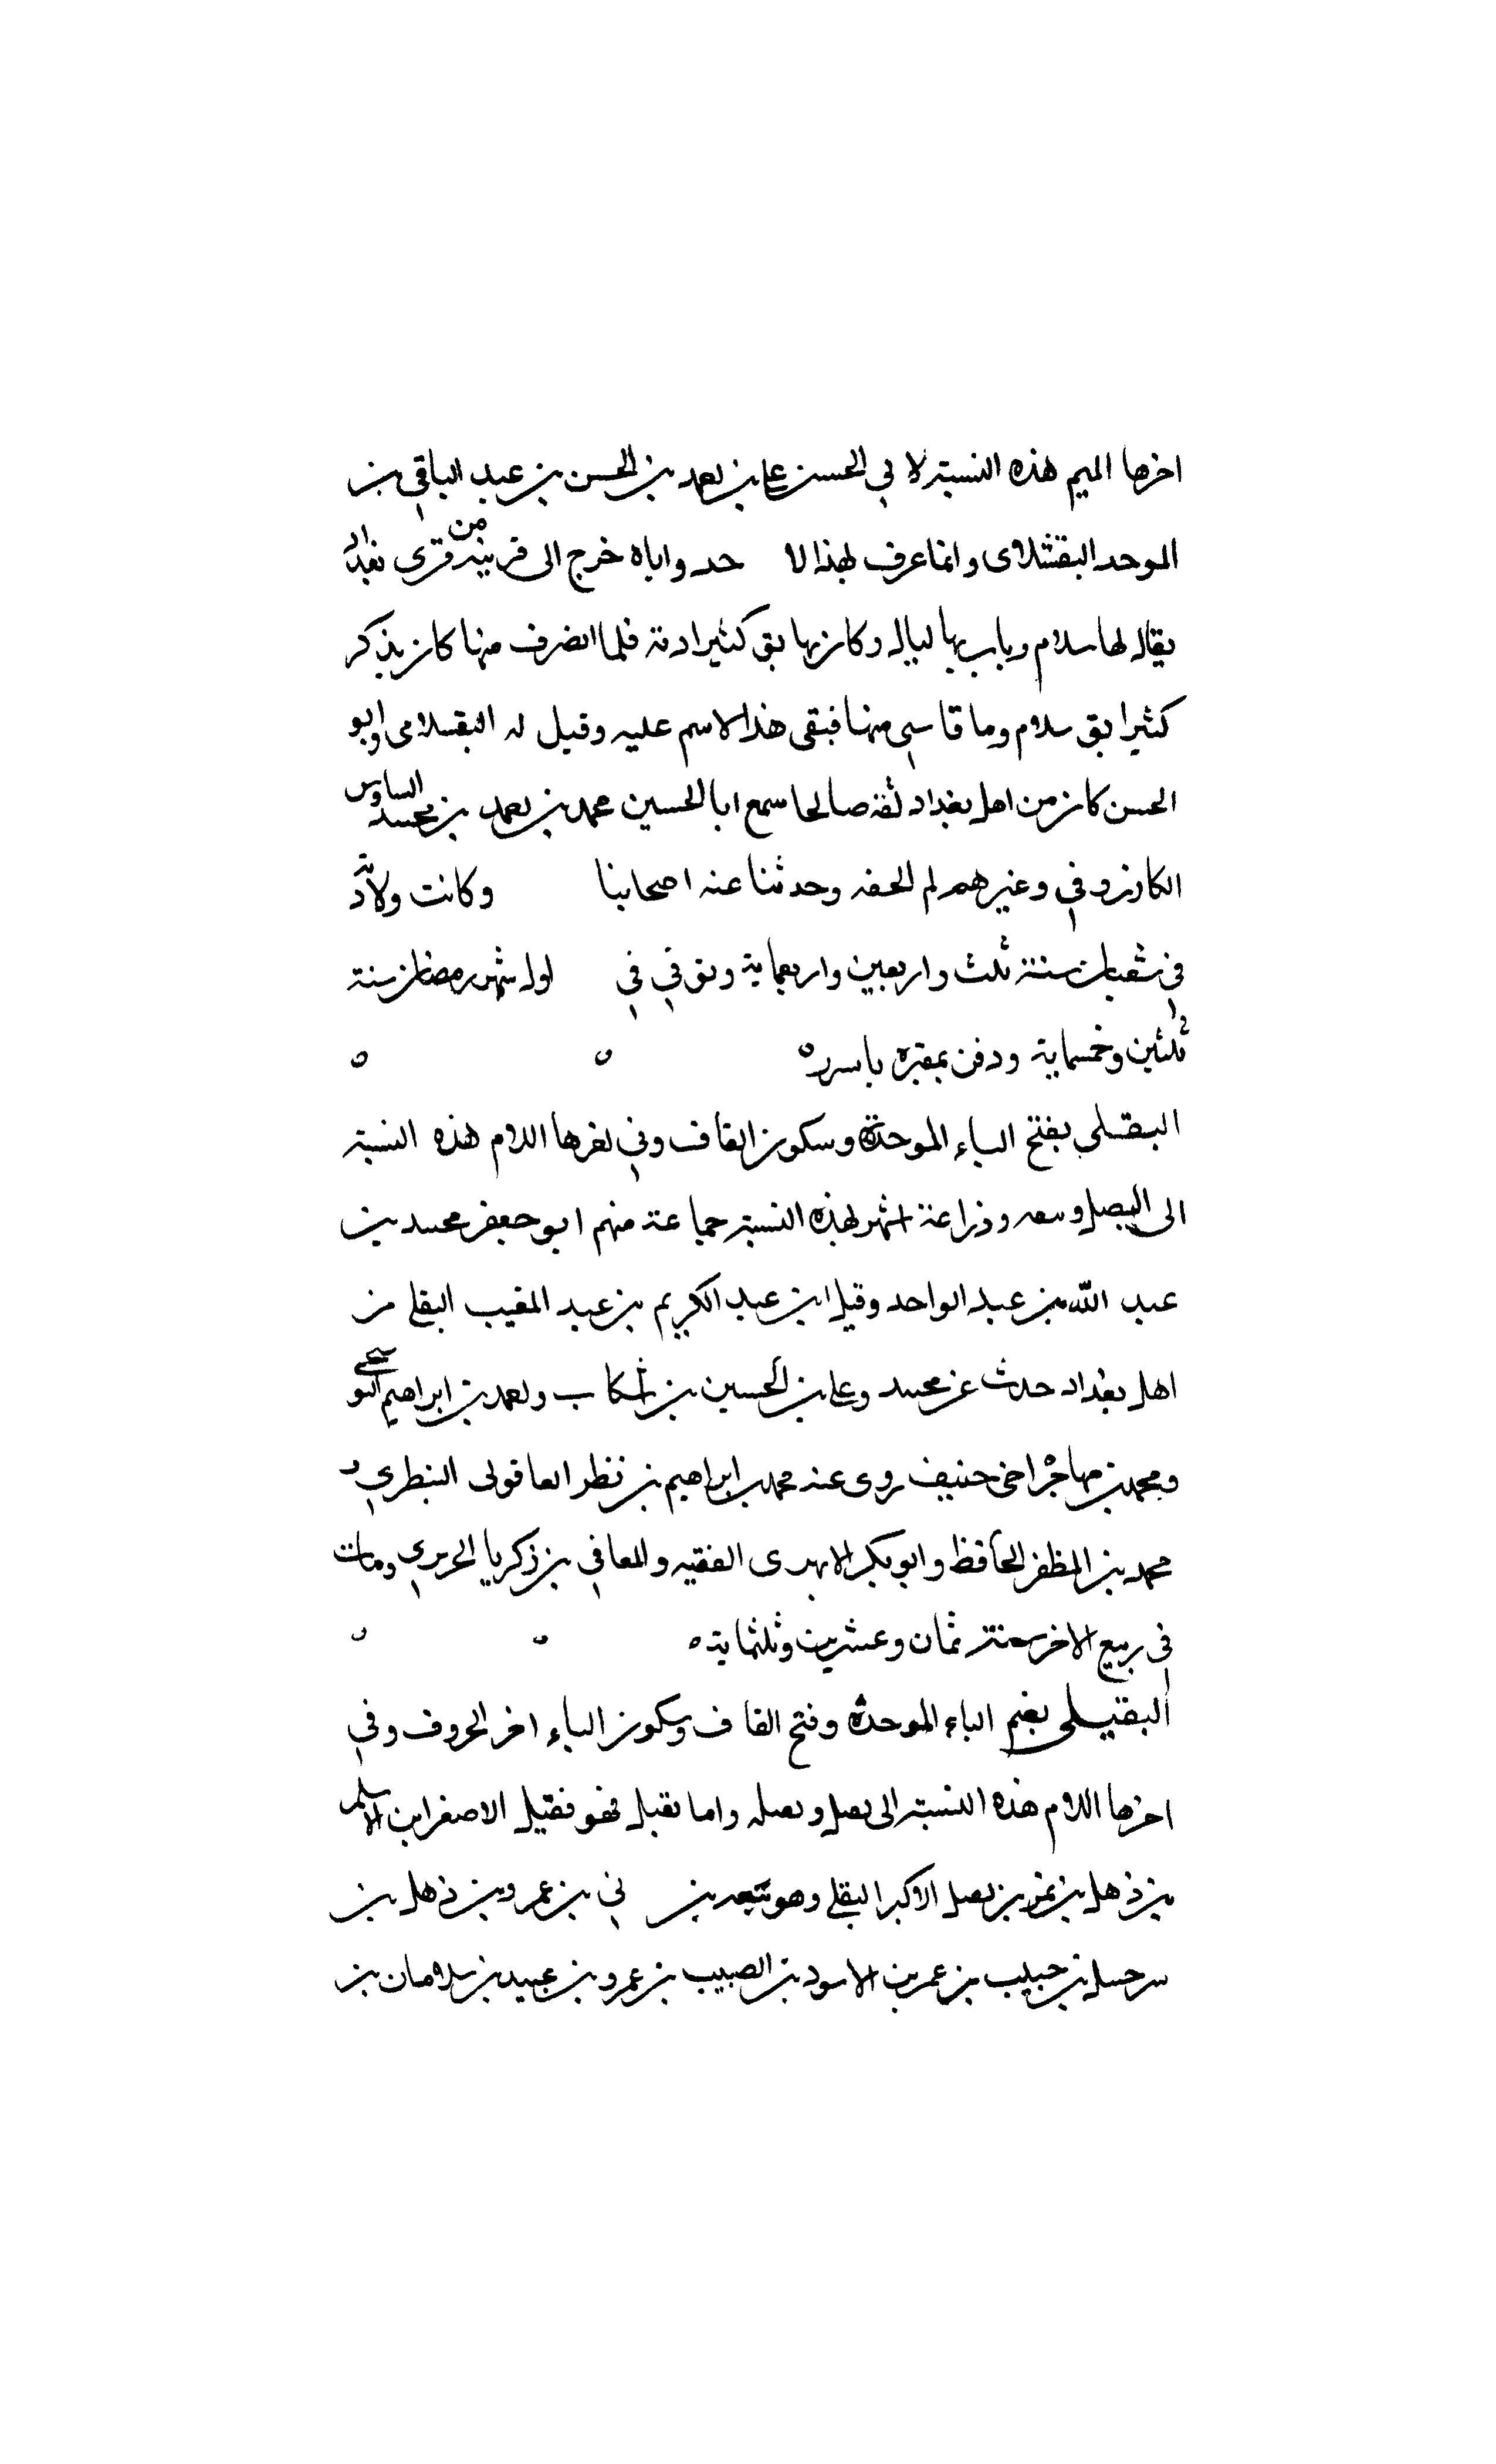 اخرها الميم هذه النسبة لا بي الحسن علي بن احمد بن الحسن بن عبد الباقي بن
الموحد البقشلاى وانما عرف بهذا لا حد واباه خرج الى قرية من قرى بغداد
يقال لها سلام وبات بها ليال وكان بها بق كثير اذته فلما انصرف منها كان يذكر
كثيرا بق سلام وما قاسى منها فبقى هذا الاسم عليه وقيل له البقسلامى وابو
الحسن كان من اهل بغداد ثقة صالحا سمع ابا الحسين محمد بن احمد بن محمد
الكازروني وغيرهم لم الحقه وحدثنا عنه اصحابنا وكانت ولادته
في شعبان سنة ثلث واربعين واربعماية وتوفي في اول شهر رمضان سنة
ثلثين وخمسماية ودفن بمقبرة
البقلى بفتح الباء الموحدة وسكون القاف وفي اخرها اللام هذه النسبة
الى وزراعة اشتهر بهذه النسبة جماعة منهم ابو جعفر محمد بن
عبد الله بن عبد الواحد وقيل ابن عبد الكريم بن عبد المغيب البقلي من
اهل بغداد حدث عن محمد وعلي بن الحسين بن اشكاب واحمد بن ابراهيم
ومحمد بن مهاجر اخي حنيف روى عنه محمد بن ابراهيم بن العاقولى
محمد بن المظفر الحافظ وابو بكر الابهرى الفقيه والمعافي بن زكريا الجريري ومات
في ربيع الاخر سنة ثمان وعشرين وثلثماية
البقيلى بضم الباء الموحدة وفتح القاف وسكون الياء اخر الحروف وفي
اخرها اللام هذه النسبة الى واما بقيل فهو بقيل الاصغر ابن اسلم
بن ذهل بن الاكبر البقلي وهو بن بن عمرو بن ذهل بن
بن حبيب بن عمر بن الاسود بن الصبيب بن عمرو بن عبيد بن سلامان بن